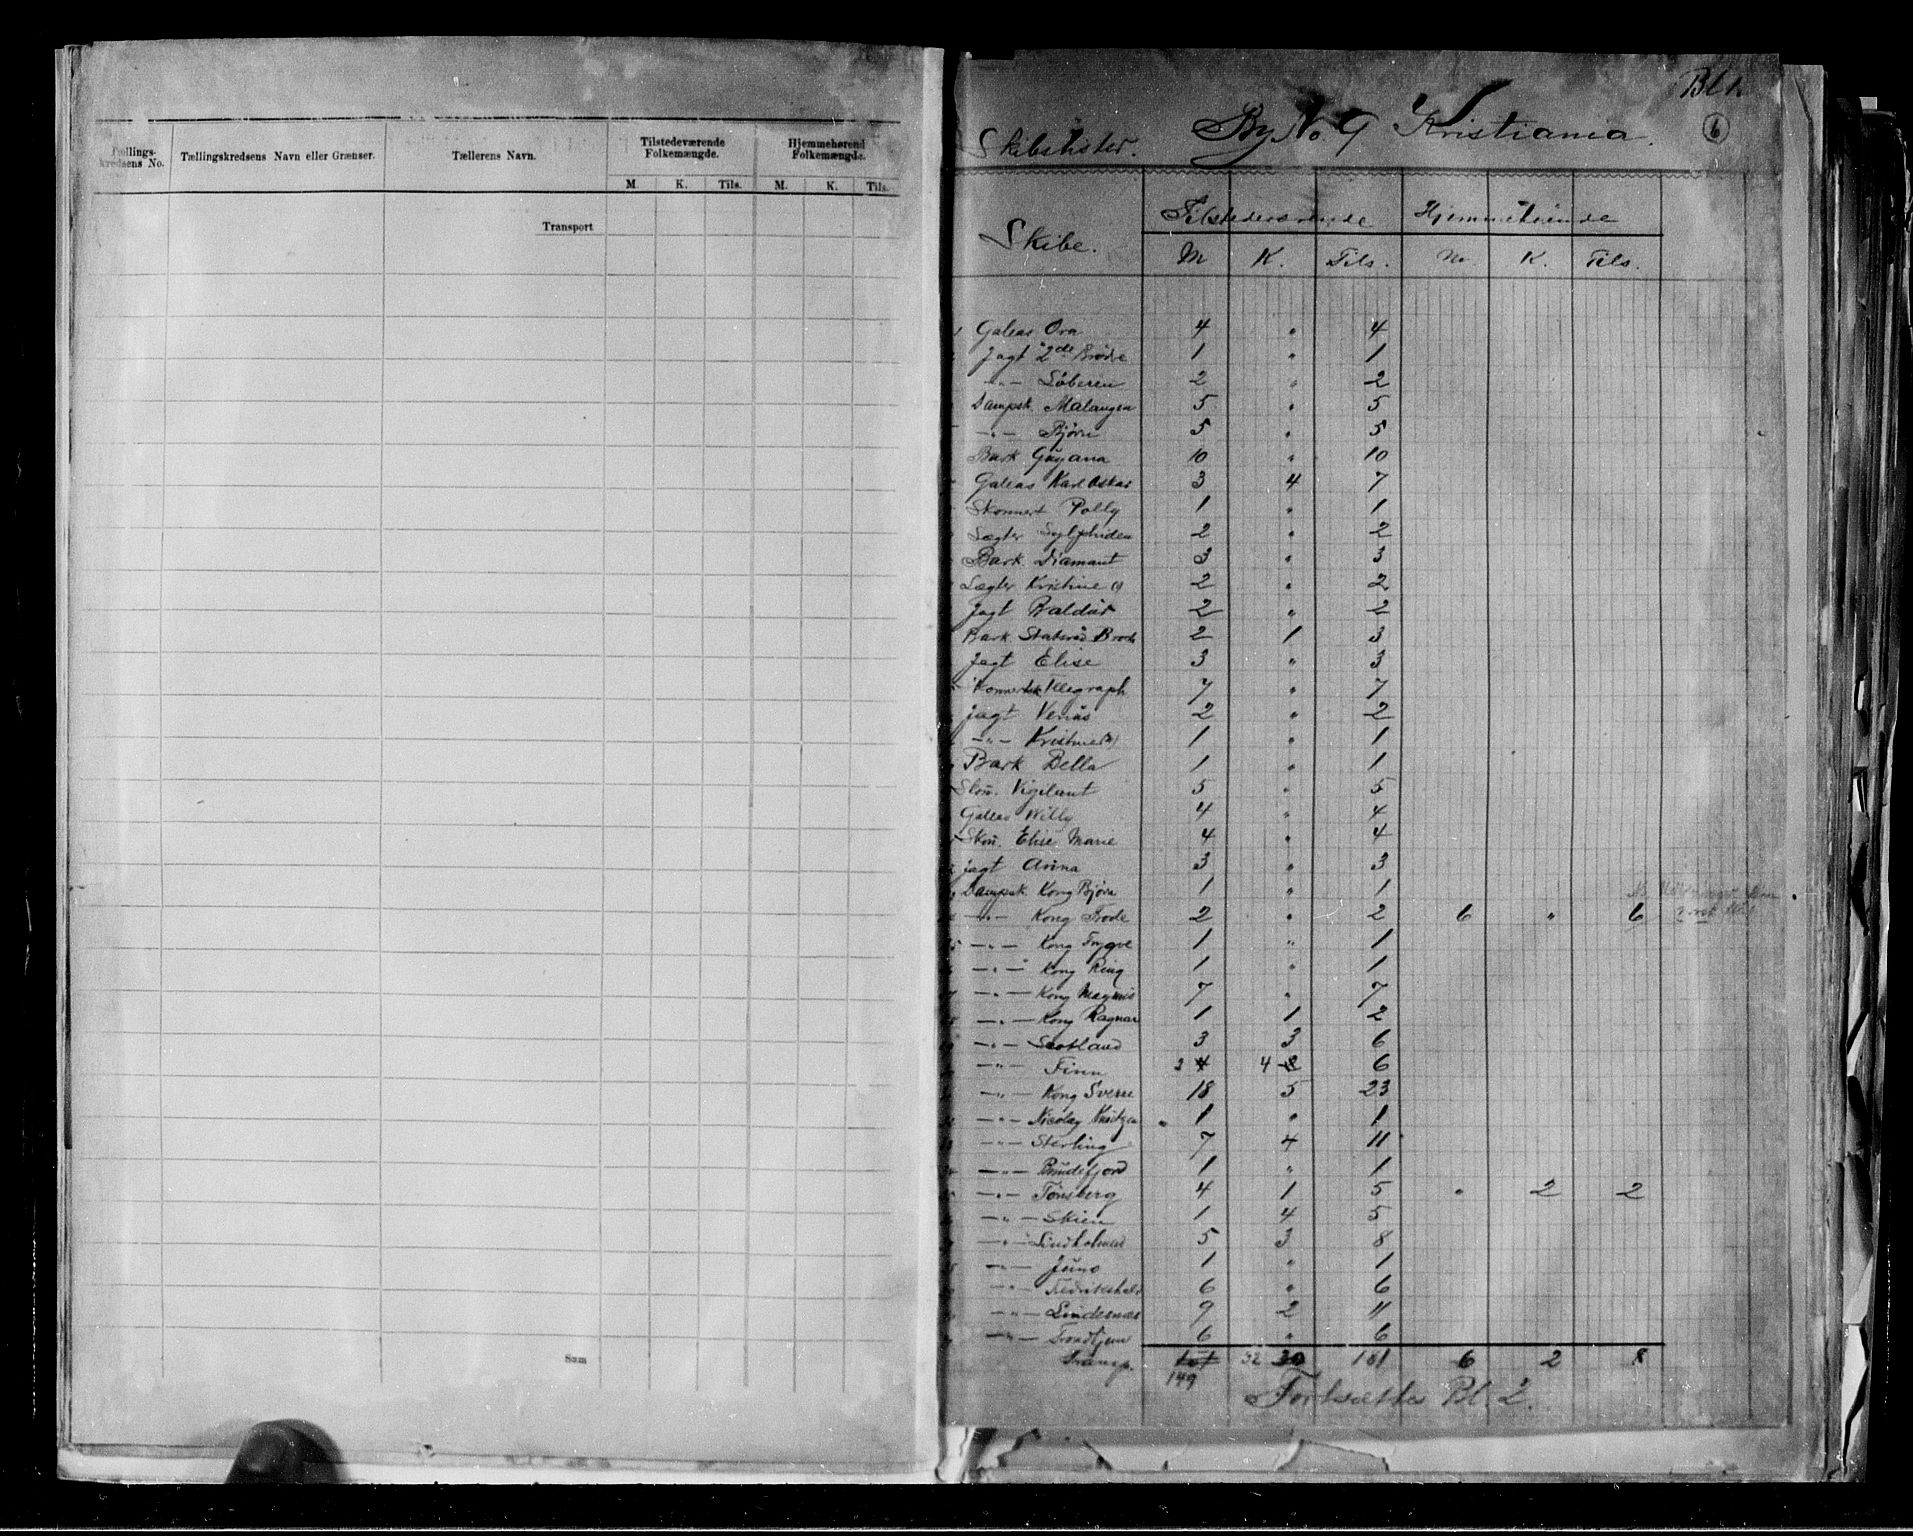 Tællings-kredsens No. Tællingskredsens Navn eller Grænser. Tællerens Navn. Tilstedeværende Folkemængde. Hjemmehørend Folkemængde.
M. K. Tils. M. K. Tils.
Transport
Sum
Bl 1.
Skibslister. By No. 9 Kristiania. 6
Skibe. Tilstedeværende Hjemmehørende
M K. Tils. M. K. Tils.
Galeas Ora 4 " 4
Jagt 2de Brødre 1 " 1
-"- Søberen 2 " 2
Dampsk. Malangen 5 " 5
-"- Bjørn 5 " 5
Bark Guyana 10 " 10
Galeas Karl Oskar 3 4 7
Skonnert Polly 1 " 1
Lægter Sylphiden 2 " 2
Bark. Diamant 3 " 3
Lægter Kristine (1) 2 " 2
Jagt Baldur 2 " 2
Bark Statsråd Broch 2 1 3
Jagt Elise 3 " 3
Konnertsk Telegraph 7 " 7
Jagt Venus 2 " 2
-"- Kristine (2) 1 " 1
Bark Bella 1 " 1
Skon. Vigilant 5 " 5
Galeas Willy 4 " 4
Skon. Elise Marie 4 " 4
Jagt Anna 3 " 3
Dampsk. Kong Bjørn 1 " 1
-"- Kong Frode 2 " 2 6 " 6
-"- Kong Trygve 1 " 1
-"- Kong Ring 1 " 1
-"- Kong Magnus 7 " 7
-"- Kong Ragnar 1 1 2
-"- Scotland 3 3 6
-"- Finn 2 4 4 2 6
-"- Kong Sverre 18 5 23
-"- Nicolay Knutzen 1 " 1
-"- Sterling 7 4 11
-"- Bundefjord 1 " 1
-"- Tönsberg 4 1 5 " 2 2
-"- Skien 1 4 5
-"- Lindholmen 5 3 8
-"- Juno 1 " 1
-"- Fredrikshald 6 " 6
-"- Lindesnæs 9 2 11
-"- Trondhjem 6 " 6
Transp. 151 149 32 30 181 6 2 8
Fortsættes Bl. 2.